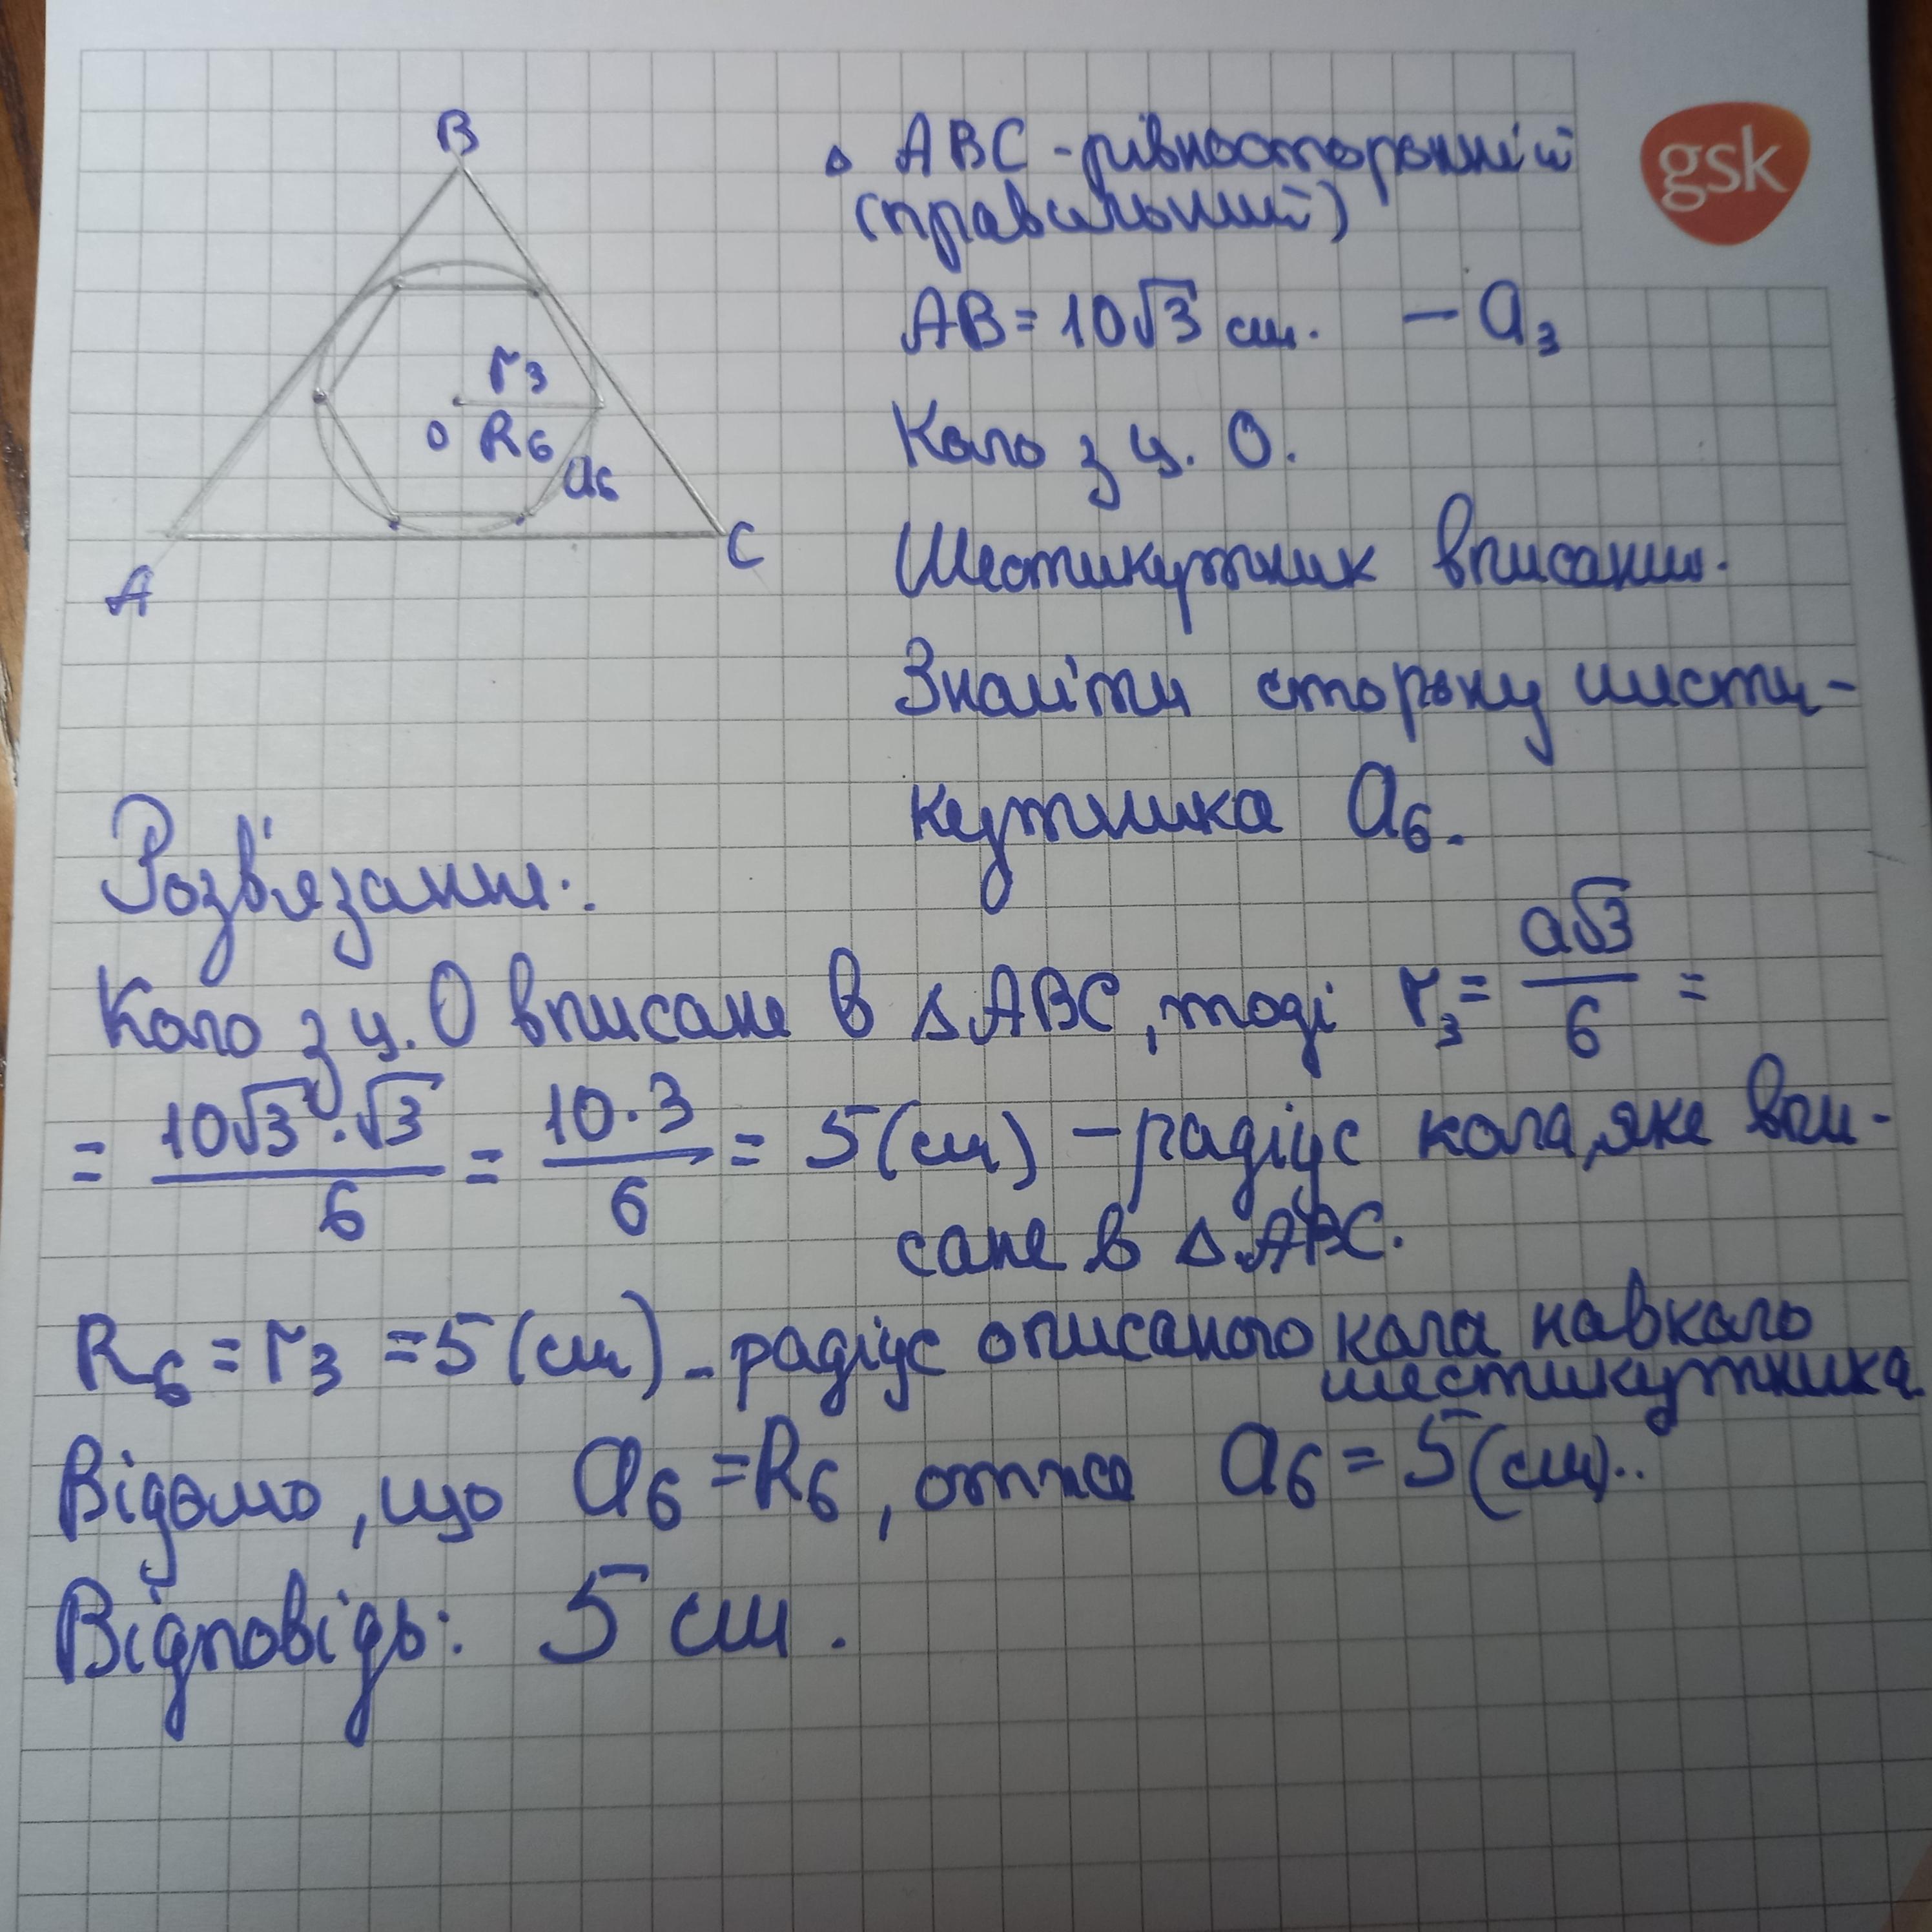 B
△ ABC - рівносторонній
(правильний)
gsk
AB = 10√3 см. - a₃
r₃
O R₆
a₆
A
C
Коло з ц. O.
Шестикутник вписаний.
Знайти сторону шести-
кутника a₆.
Розв'язання:
Коло з ц. O вписане в △ABC, тоді r₃ = a√3/6 =
= 10√3·√3/6 = 10·3/6 = 5 (см) - радіус кола, яке впи-
сане в △ABC.
R₆ = r₃ = 5 (см) - радіус описаного кола навколо
шестикутника
Відомо, що a₆ = R₆, отже a₆ = 5 (см)..
Відповідь: 5 см.